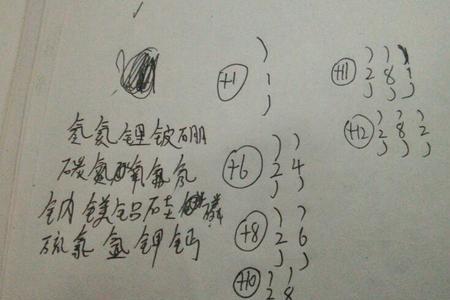 氢氦锂铍硼
碳氮氧氟氖
钠镁铝硅磷
硫氯氩钾钙
+1 1
+6 2 4
+8 2 6
+10 2 8
+11 2 8 1
+12 2 8 2